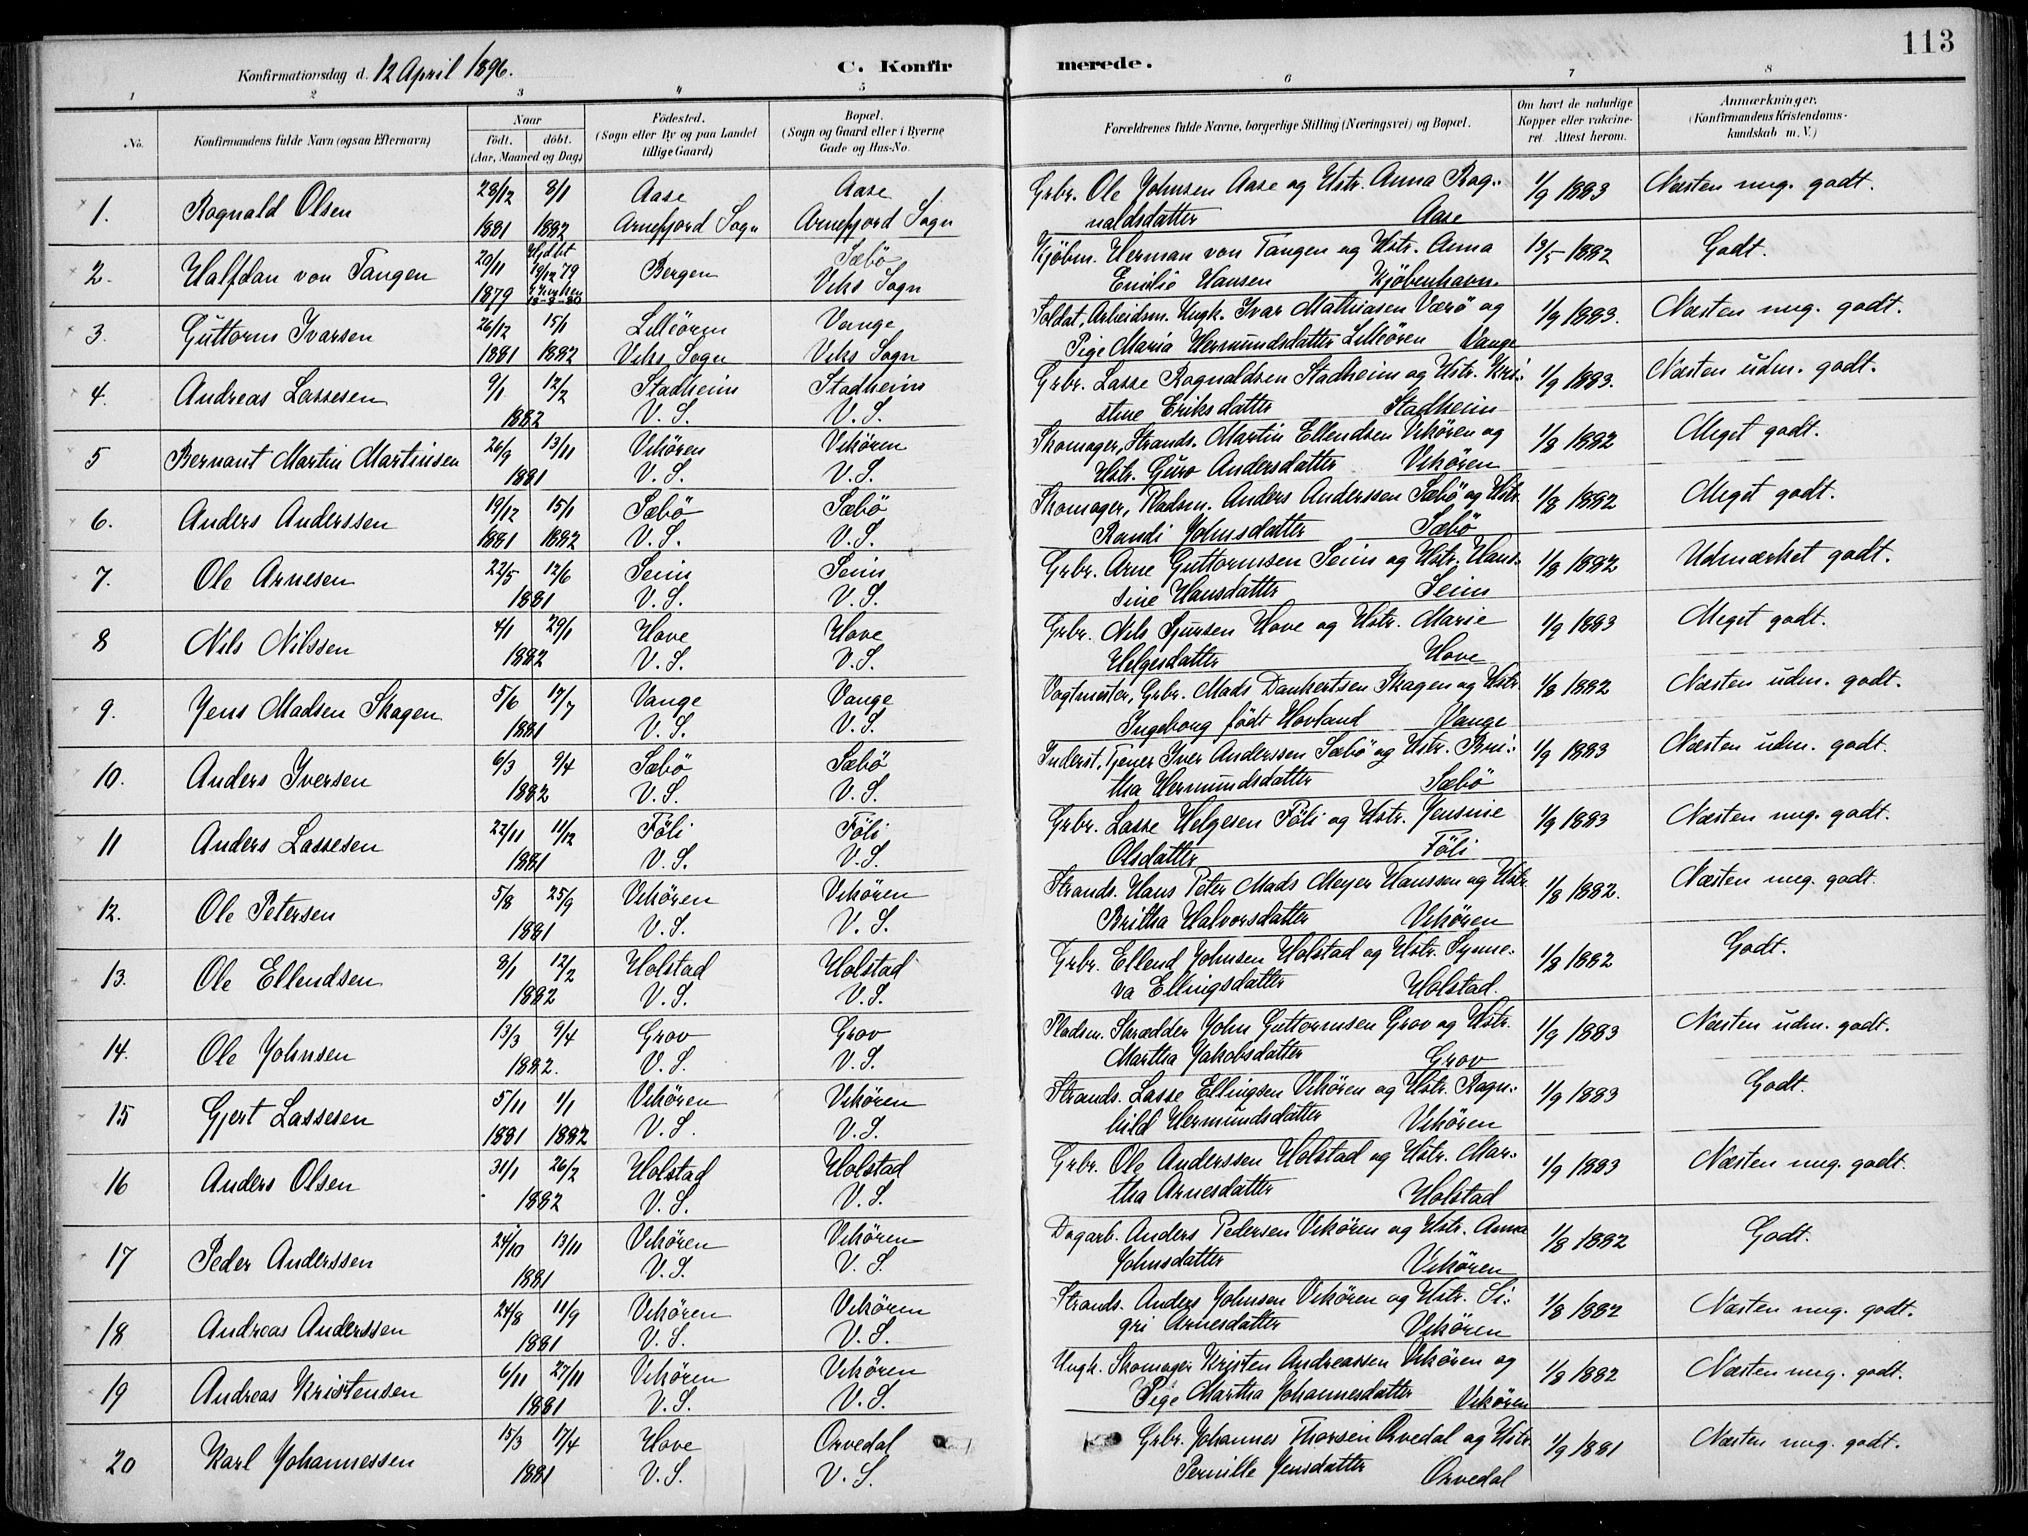 113
Konfirmationsdag d. 12 April 1896.
C. Konfirmerede.
1 2 3 4 5 6 7 8
No.
Konfirmandens fulde Navn (ogsaa Efternavn)
Naar
födt. döbt.
(Aar, Maaned og Dag)
Födested.
(Sogn eller By og paa Landet
tillige Gaard)
Bopæl.
(Sogn og Gaard eller i Byerne
Gade og Hus-No.
Forældrenes fulde Navne, borgerlige Stilling (Næringsvei) og Bopæl.
Om havt de naturlige
Kopper eller vakcine-
ret Attest herom.
Anmærkninger.
(Konfirmandens Kristendoms-
kundskab m. V.)
1. Ragnald Olsen 28/12 8/1 Aase Aase Grbr. Ole Johnsen Aase og Hstr. Anna Rag: 1/9 1883 Næsten mg. godt.
1881 1882 Arnefjord Sogn Arnefjord Sogn naldsdatter Aase
2. Halfdan von Tangen 20/11 Hjdbt 19/12 79 Bergen Sæbö Kjöbm. Herman von Tangen og Hstr. Anna 13/5 1882 Godt.
1879 Viks Sogn Emilie Hansen Kjöbenhavn.
3. Guttorm Ivarsen 26/12 15/1 Lilleören Vange Soldat, Arbeidsm. Ungk. Ivar Mathiasen Værö og 1/9 1883. Næsten mg. godt.
1881 1882 Viks Sogn Viks Sogn Pige Maria Hermundsdatter Lilleören Vange
4. Andreas Lassesen 9/1 12/2 Stadheim Stadheim Grbr. Lasse Ragnaldsen Stadheim og Hstr. Kri: 1/9 1883. Næsten udm. godt.
1882 V. S. V. S. stine Eriksdatter Stadheim
5 Bernant Martin Martinsen 26/9 13/11 Vikören Vikören Skomager, Strands. Martin Ellendsen Vikören og 1/8 1882 Meget godt.
1881 V. S. V. S. Hstr. Guro Andersdatter Vikören
6. Anders Anderssen 19/12 15/1 Sæbö Sæbö Skomager, Pladsm. Anders Anderssen Sæbö og Hstr. 1/8 1882 Meget godt.
1881 1882 V. S. V. S. Randi Johnsdatter Sæbö
7. Ole Arnesen 22/5 12/6 Seim Seim Grbr. Arne Guttormsen Seim og Hstr. Hans: 1/8 1882 Udmærket godt.
1881 V. S. V. S. sine Hansdatter Seim
8 Nils Nilssen 4/1 29/1 Hove Hove Grbr. Nils Sjursen Hove og Hstr. Marie 1/9 1883 Meget godt.
1882 V. S. V. S. Helgesdatter Hove
9. Jens Madsen Skagen 5/6 17/7 Vange Vange Vagtmester, Grbr. Mads Dankertsen Skagen og Hstr. 1/8 1882 Næsten udm. godt.
1881 V. S. V. S. Ingeborg födt Hovland Vange
10. Anders Iversen 6/3 9/4 Sæbö Sæbö Inderst. Tjener Iver Anderssen Sæbö og Hstr. Bri: 1/9 1883 Næsten udm. godt.
1882 V. S. V. S. tha Hermundsdatter Sæbö
11 Anders Lassesen 22/11 11/12 Föli Föli Grbr. Lasse Helgesen Föli og Hstr. Jensine 1/9 1883 Næsten mg. godt.
1881 V. S. V. S. Olsdatter Föli
12. Ole Petersen 5/8 25/9 Vikören Vikören Strands. Hans Peter Mads Meyer Hanssen og Hstr. 1/8 1882. Næsten mg. godt.
1881 V. S. V. S. Britha Halvorsdatter Vikören
13. Ole Ellendsen 8/1 12/2 Holstad Holstad Grbr. Ellend Johnsen Holstad og Hstr. Synne: 1/8 1882 Godt.
1882 V. S. V. S. va Ellingsdatter Holstad.
14. Ole Johnsen 13/3 9/4 Grov Grov Pladsm. Skrædder John Guttormsen Grov og Hstr. 1/9 1883 Næsten udm. godt.
1882. V. S. V. S. Martha Jakobsdatter Grov
15 Gjert Lassesen 5/11 1/1 Vikören Vikören Strands. Lasse Ellingsen Vikören og Hstr. Ragn: 1/9 1883 Godt.
1881 1882 V. S. V. S. hild Hermundsdatter Vikören
16 Anders Olsen 31/1 26/2 Holstad Holstad Grbr. Ole Anderssen Holstad og Hstr. Mar: 1/9 1883 Næsten mg. godt.
1882 V. S. V. S. tha Arnesdatter Holstad
17 Peder Anderssen 24/10 13/11 Vikören Vikören Dagarb. Anders Pedersen Vikören og Hstr. Anna 1/8 1882 Godt.
1881 V. S. V. S. Johnsdatter Vikören
18 Andreas Anderssen 24/8 11/9 Vikören Vikören Strands. Anders Johnsen Vikören og Hstr. Si: 1/8 1882 Næsten mg. godt.
1881 V. S. V. S. gri Arnesdatter Vikören
19 Andreas Kristensen 6/11 27/11 Vikören Vikören Ungk. Skomager Kristen Andreassen Vikören og 1/8 1882 Næsten mg. godt.
1881 V. S. V. S. Pige Martha Johannesdatter Vikören
20 Karl Johannessen 15/3 17/4 Hove Orvedal Grbr. Johannes Thorsen Orvedal og Hstr. 1/9 1881 Næsten mg. godt.
1881 V. S. V. S. Pernille Jensdatter Orvedal